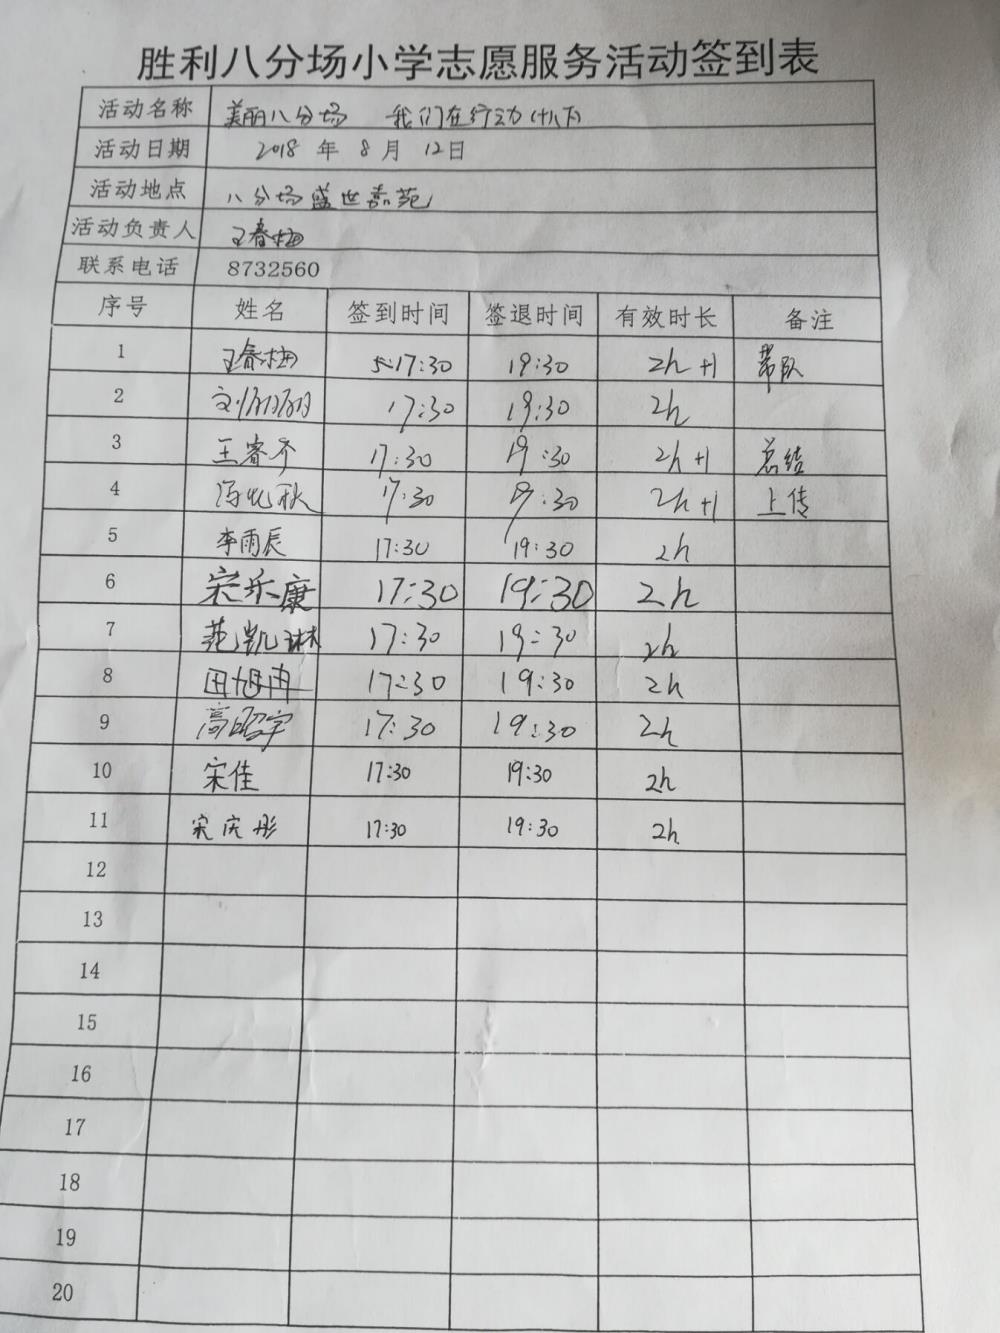 胜利八分场小学志愿服务活动签到表
活动名称 美丽八分场 我们在行动(十八)
活动日期 2018 年 8 月 12日
活动地点 八分场盛世嘉苑
活动负责人 王春梅
联系电话 8732560
序号 姓名 签到时间 签退时间 有效时长 备注
1 王春梅 17:30 19:30 2h +1 带队
2 刘丽丽 17:30 19:30 2h
3 王睿齐 17:30 19:30 2h +1 总结
4 17:30 19:30 2h +1 上传
5 李雨辰 17:30 19:30 2h
6 宋乐康 17:30 19:30 2h
7 范凯琳 17:30 19:30 2h
8 17:30 19:30 2h
9 高昭宇 17:30 19:30 2h
10 宋佳 17:30 19:30 2h
11 宋庆彤 17:30 19:30 2h
12
13
14
15
16
17
18
19
20